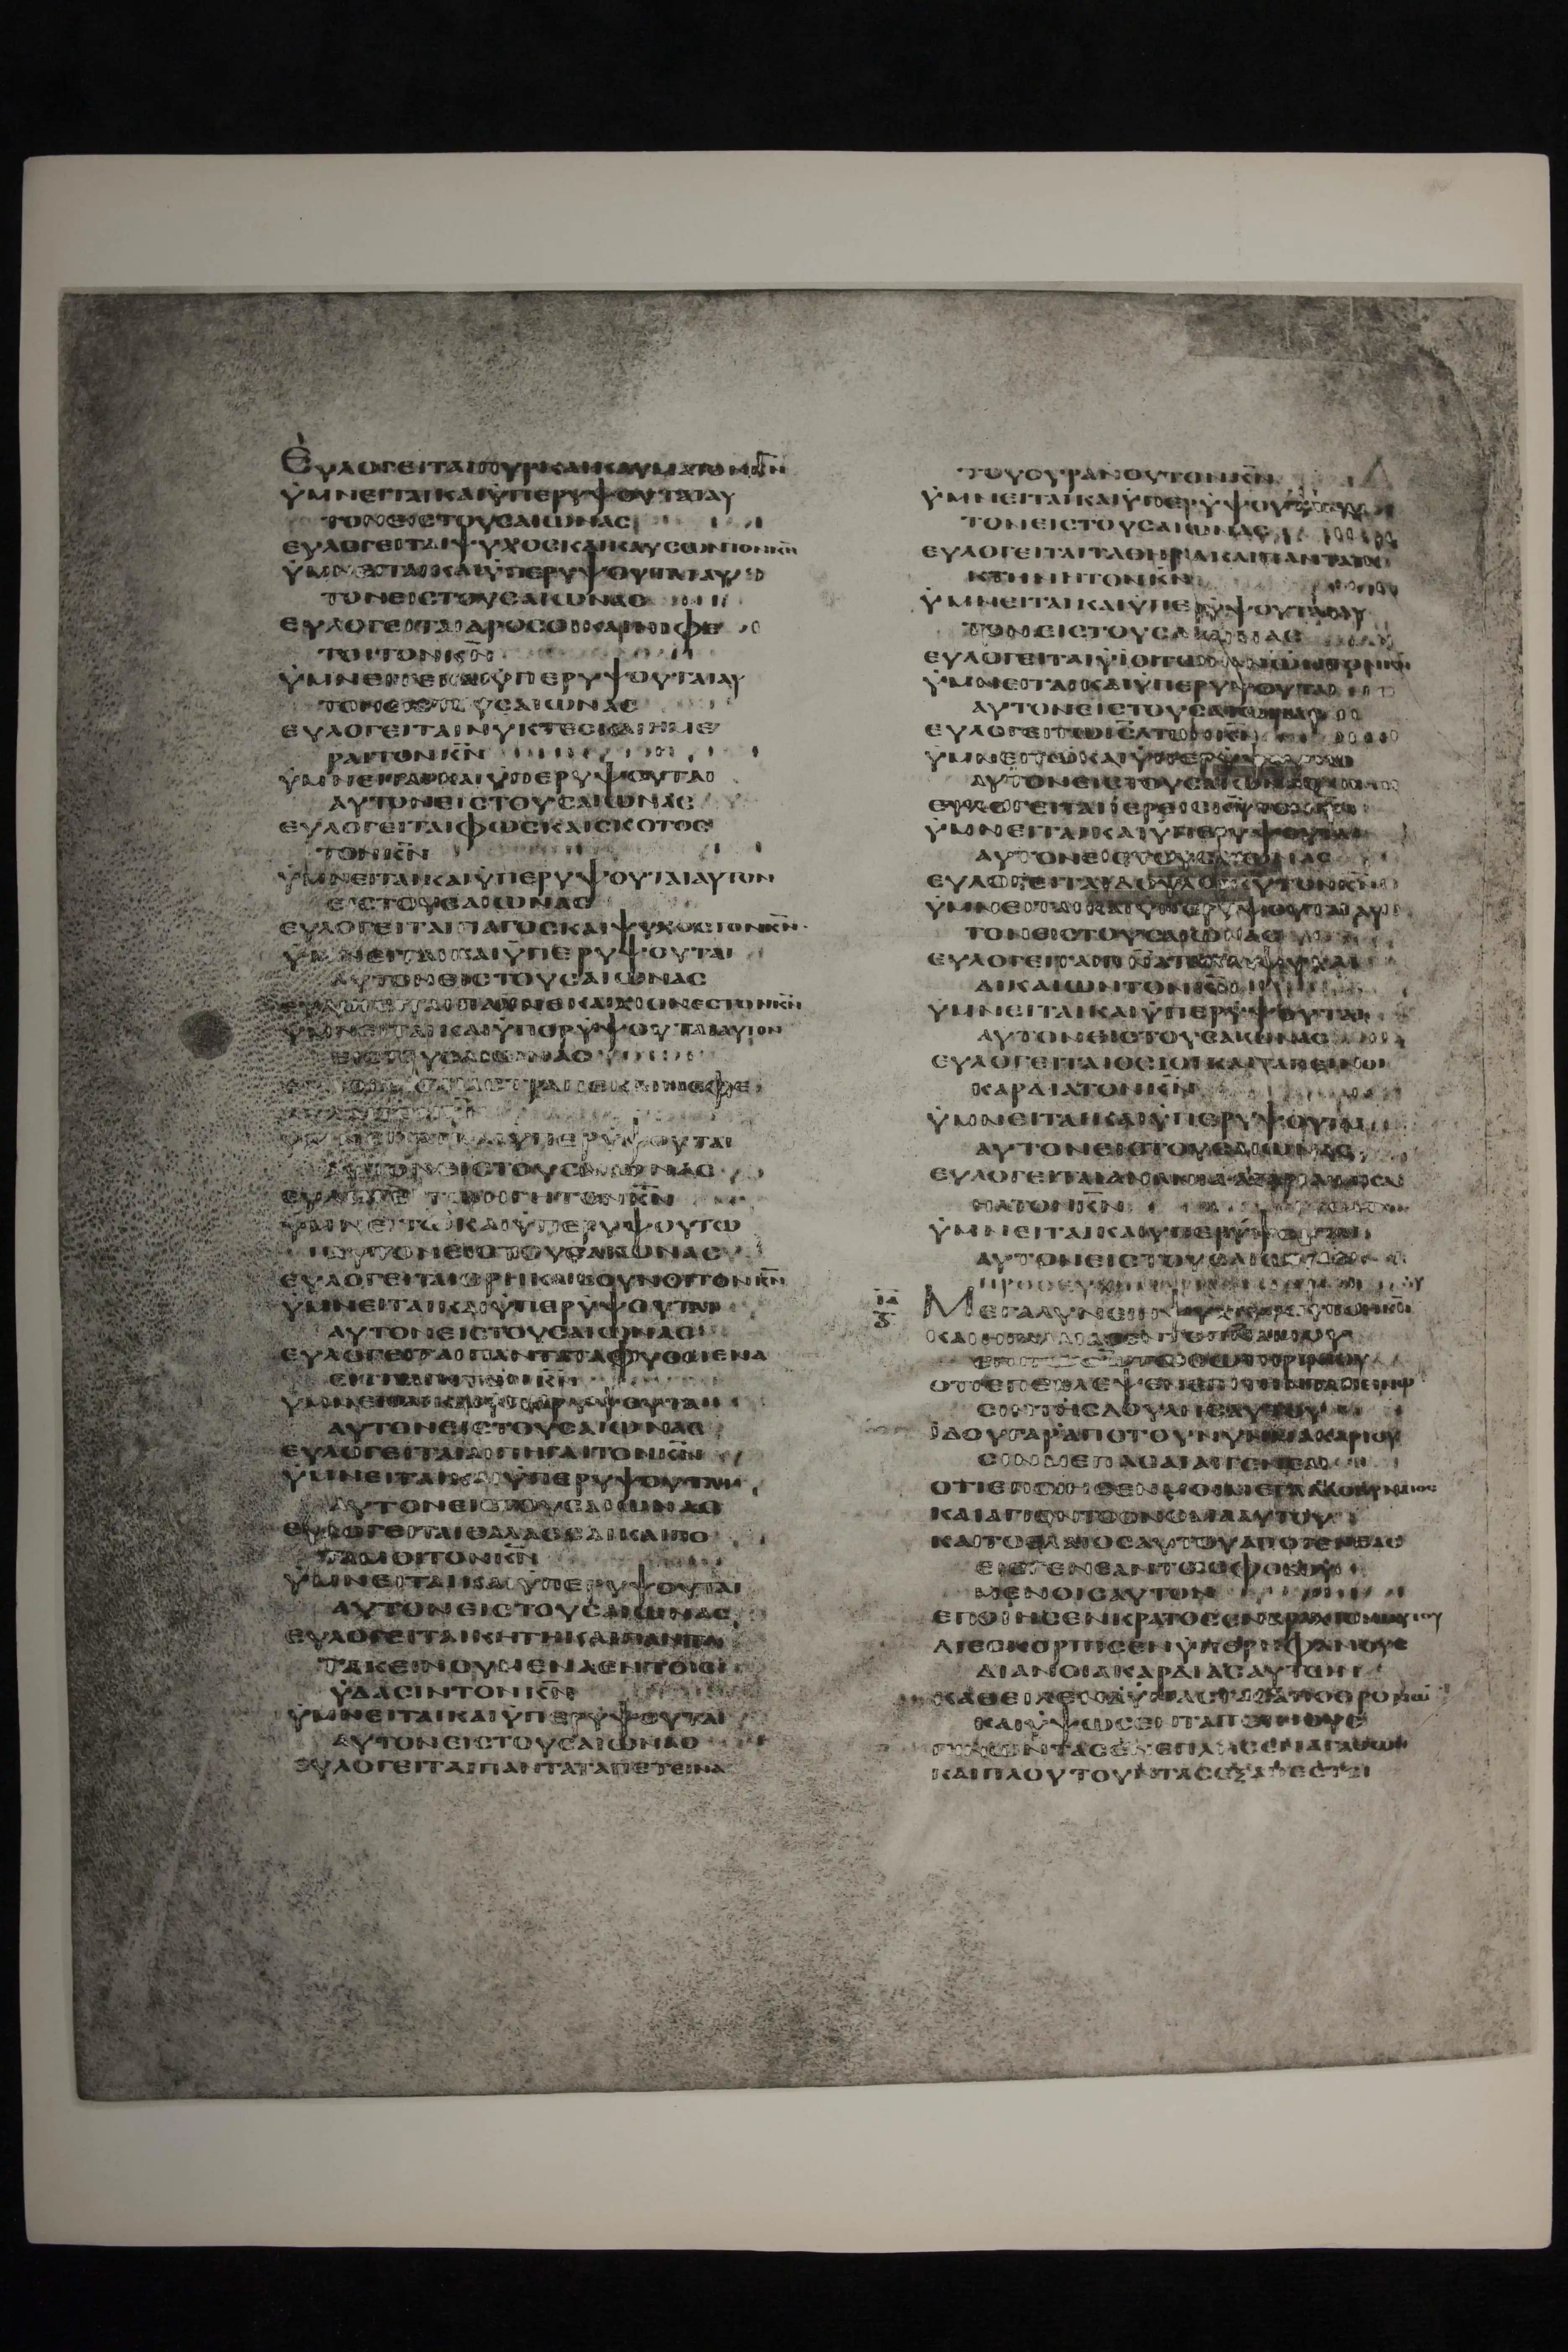 ΕΥΛΟΓΕΙΤΑΙΠΥΡΚΑΙΚΑΥΜΑΤΟΝΚ̅Ν̅
ΫΜΝΕΙΤΑΙΚΑΙΫΠΕΡΥΨΟΥΤΑΙΑΥ
ΤΟΝΕΙΣΤΟΥΣΑΙΩΝΑΣ
ΕΥΛΟΓΕΙΤΑΙΨΥΧΟΣΚΑΙΚΑΥΣΩΝΤΟΝΚ̅Ν̅
ΫΜΝΕΙΤΑΙΚΑΙΫΠΕΡΥΨΟΥΤΑΙΑΥ
ΤΟΝΕΙΣΤΟΥΣΑΙΩΝΑΣ
ΕΥΛΟΓΕΙΤΑΙΔΡΟΣΟΙΚΑΙΝΙΦΕ
ΤΟΙΤΟΝΚ̅Ν̅
ΫΜΝΕΙΤΕΚΑΙΫΠΕΡΥΨΟΥΤΑΙΑΥ
ΤΟΝΕΙΣΤΟΥΣΑΙΩΝΑΣ
ΕΥΛΟΓΕΙΤΑΙΝΥΚΤΕΣΚΑΙΗΜΕ
ΡΑΙΤΟΝΚ̅Ν̅
ΫΜΝΕΙΤΑΙΚΑΙΫΠΕΡΥΨΟΥΤΑΙ
ΑΥΤΟΝΕΙΣΤΟΥΣΑΙΩΝΑΣ
ΕΥΛΟΓΕΙΤΑΙΦΩΣΚΑΙΣΚΟΤΟΣ
ΤΟΝΚ̅Ν̅
ΫΜΝΕΙΤΑΙΚΑΙΫΠΕΡΥΨΟΥΤΑΙΑΥΤΟΝ
ΕΙΣΤΟΥΣΑΙΩΝΑΣ
ΕΥΛΟΓΕΙΤΑΙΠΑΓΟΣΚΑΙΨΥΧΟΣΤΟΝΚ̅Ν̅
ΫΜΝΕΙΤΑΙΚΑΙΫΠΕΡΥΨΟΥΤΑΙ
ΑΥΤΟΝΕΙΣΤΟΥΣΑΙΩΝΑΣ
ΕΥΛΟΓΕΙΤΑΙΠΑΧΝΕΚΑΙΧΙΟΝΕΣΤΟΝΚ̅Ν̅
ΫΜΝΕΙΤΑΙΚΑΙΫΠΕΡΥΨΟΥΤΑΙΑΥΤΟΝ
ΕΙΣΤΟΥΣΑΙΩΝΑΣ
ΑΣΤΡΑΠΕΚΑΙΝΕΦΕ
ΚΑΙΫΠΕΡΥΨΟΥΤΑΙ
ΑΥΤΟΝΕΙΣΤΟΥΣΑΙΩΝΑΣ
ΗΓΗΤΟΝΚ̅Ν̅
ΫΜΝΕΙΤΩΚΑΙΫΠΕΡΥΨΟΥΤΩ
ΑΥΤΟΝΕΙΣΤΟΥΣΑΙΩΝΑΣ
ΕΥΛΟΓΕΙΤΑΙΟΡΗΚΑΙΒΟΥΝΟΙΤΟΝΚ̅Ν̅
ΫΜΝΕΙΤΑΙΚΑΙΫΠΕΡΥΨΟΥΤΑΙ
ΑΥΤΟΝΕΙΣΤΟΥΣΑΙΩΝΑΣ
ΕΥΛΟΓΕΙΤΑΙΠΑΝΤΑΤΑΦΥΟΜΕΝΑ
ΕΠΙΤΗΣΓΗΣΤΟΝΚ̅Ν̅
ΫΜΝΕΙΤΑΙΚΑΙΫΠΕΡΥΨΟΥΤΑΙ
ΑΥΤΟΝΕΙΣΤΟΥΣΑΙΩΝΑΣ
ΕΥΛΟΓΕΙΤΑΙΑΙΠΗΓΑΙΤΟΝΚ̅Ν̅
ΫΜΝΕΙΤΑΙΚΑΙΫΠΕΡΥΨΟΥΤΑΙ
ΑΥΤΟΝΕΙΣΤΟΥΣΑΙΩΝΑΣ
ΕΥΛΟΓΕΙΤΑΙΘΑΛΑΣΣΑΙΚΑΙΠΟ
ΤΑΜΟΙΤΟΝΚ̅Ν̅
ΫΜΝΕΙΤΑΙΚΑΙΫΠΕΡΥΨΟΥΤΑΙ
ΑΥΤΟΝΕΙΣΤΟΥΣΑΙΩΝΑΣ
ΕΥΛΟΓΕΙΤΑΙΚΗΤΗΚΑΙΠΑΝΤΑ
ΤΑΚΕΙΝΟΥΜΕΝΑΕΝΤΟΙΣ
ΫΔΑΣΙΝΤΟΝΚ̅Ν̅
ΫΜΝΕΙΤΑΙΚΑΙΫΠΕΡΥΨΟΥΤΑΙ
ΑΥΤΟΝΕΙΣΤΟΥΣΑΙΩΝΑΣ
ΕΥΛΟΓΕΙΤΑΙΠΑΝΤΑΤΑΠΕΤΕΙΝΑ
ΤΟΥΟΥΡΑΝΟΥΤΟΝΚ̅Ν̅
ΫΜΝΕΙΤΑΙΚΑΙΫΠΕΡΥΨΟΥΤΑΙΑΥ
ΤΟΝΕΙΣΤΟΥΣΑΙΩΝΑΣ
ΕΥΛΟΓΕΙΤΑΙΤΑΘΗΡΙΑΚΑΙΠΑΝΤΑΤΑ
ΚΤΗΝΗΤΟΝΚ̅Ν̅
ΫΜΝΕΙΤΑΙΚΑΙΫΠΕΡΥΨΟΥΤΑΙΑΥ
ΤΟΝΕΙΣΤΟΥΣΑΙΩΝΑΣ
ΕΥΛΟΓΕΙΤΑΙΫΙΟΙΤΩΝΑΝ̅Ω̅Ν̅ΤΟΝΚ̅Ν̅
ΫΜΝΕΙΤΑΙΚΑΙΫΠΕΡΥΨΟΥΤΑΙ
ΑΥΤΟΝΕΙΣΤΟΥΣΑΙΩΝΑΣ
ΕΥΛΟΓΕΙΤΩΙΣ̅Λ̅ΤΟΝΚ̅Ν̅
ΫΜΝΕΙΤΩΚΑΙΫΠΕΡΥΨΟΥΤΩ
ΑΥΤΟΝΕΙΣΤΟΥΣΑΙΩΝΑΣ
ΕΥΛΟΓΕΙΤΑΙΙΕΡΕΙΣΚ̅Υ̅ΤΟΝΚ̅Ν̅
ΫΜΝΕΙΤΑΙΚΑΙΫΠΕΡΥΨΟΥΤΑΙ
ΑΥΤΟΝΕΙΣΤΟΥΣΑΙΩΝΑΣ
ΕΥΛΟΓΕΙΤΑΙΔΟΥΛΟΙΚ̅Υ̅ΤΟΝΚ̅Ν̅
ΫΜΝΕΙΤΑΙΚΑΙΫΠΕΡΥΨΟΥΤΑΙΑΥ
ΤΟΝΕΙΣΤΟΥΣΑΙΩΝΑΣ
ΕΥΛΟΓΕΙΤΑΙΠ̅Ν̅Α̅ΤΑΚΑΙΨΥΧΑΙ
ΔΙΚΑΙΩΝΤΟΝΚ̅Ν̅
ΫΜΝΕΙΤΑΙΚΑΙΫΠΕΡΥΨΟΥΤΑΙ
ΑΥΤΟΝΕΙΣΤΟΥΣΑΙΩΝΑΣ
ΕΥΛΟΓΕΙΤΑΙΟΣΙΟΙΚΑΙΤΑΠΕΙΝΟΙ
ΚΑΡΔΙΑΤΟΝΚ̅Ν̅
ΫΜΝΕΙΤΑΙΚΑΙΫΠΕΡΥΨΟΥΤΑΙ
ΑΥΤΟΝΕΙΣΤΟΥΣΑΙΩΝΑΣ
ΕΥΛΟΓΕΙΤΑΙΑΝΑΝΙΑΑΖΑΡΙΑΜΙΣΑ
ΗΛΤΟΝΚ̅Ν̅
ΫΜΝΕΙΤΑΙΚΑΙΫΠΕΡΥΨΟΥΤΑΙ
ΑΥΤΟΝΕΙΣΤΟΥΣΑΙΩΝΑΣ
ΠΡΟΣΕΥΧΗ
ΜΕΓΑΛΥΝΕΙΗΨΥΧΗΜΟΥΤΟΝΚ̅Ν̅
ΟΤΙΕΠΕΒΛΕΨΕΝΕΠΙΤΗΝΤΑΠΕΙΝΩ
ΣΙΝΤΗΣΔΟΥΛΗΣΑΥΤΟΥ
ΙΔΟΥΓΑΡΑΠΟΤΟΥΝΥΝΜΑΚΑΡΙΟΥ
ΣΙΝΜΕΠΑΣΑΙΑΙΓΕΝΕΑΙ
ΟΤΙΕΠΟΙΗΣΕΝΜΟΙΜΕΓΑΛΑΟΔΥΝΑΤΟΣ
ΚΑΙΑΓΙΟΝΤΟΟΝΟΜΑΑΥΤΟΥ
ΚΑΙΤΟΕΛΕΟΣΑΥΤΟΥΑΠΟΓΕΝΕΑΣ
ΕΙΣΓΕΝΕΑΝΤΟΙΣΦΟΒΟΥ
ΜΕΝΟΙΣΑΥΤΟΝ
ΕΠΟΙΗΣΕΝΚΡΑΤΟΣΕΝΒΡΑΧΙΟΝΙΑΥΤΟΥ
ΔΙΕΣΚΟΡΠΙΣΕΝΫΠΕΡΗΦΑΝΟΥΣ
ΔΙΑΝΟΙΑΚΑΡΔΙΑΣΑΥΤΩΝ
ΚΑΘΕΙΛΕΝΔΥΝΑΣΤΑΣΑΠΟΘΡΟΝΩΝ
ΚΑΙΫΨΩΣΕΝΤΑΠΕΙΝΟΥΣ
ΠΙΝΩΝΤΑΣΕΝΕΠΛΗΣΕΝΑΓΑΘΩΝ
ΚΑΙΠΛΟΥΤΟΥΝΤΑΣΕΞΑΠΕΣΤΕΙ